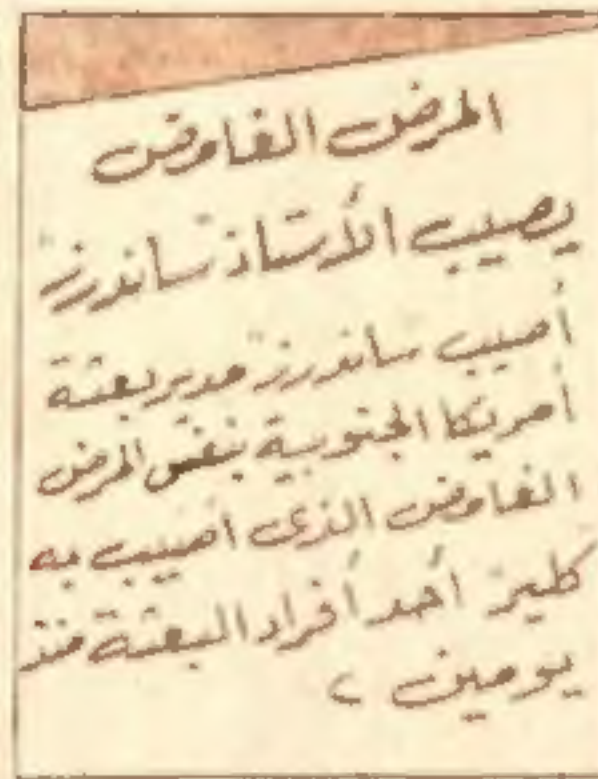 المرض الغامض
يصيب الأستاذ "ساندرز"
أصيب "ساندرز" مدير بعثة
أمريكا الجنوبية بنفس المرض
الغامض الذى أصيب به
كلير أحد أفراد البعثة منذ
يومين